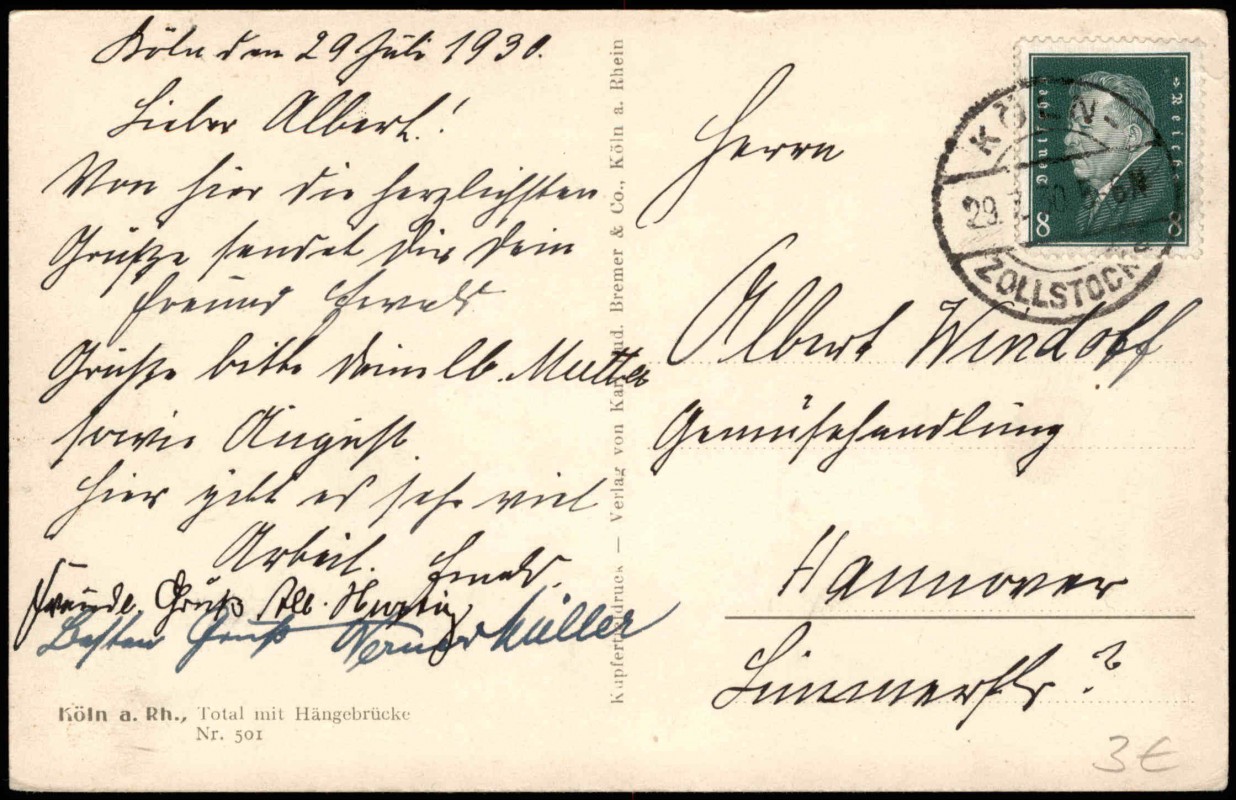 Köln den 29 Juli 1930.
Lieber Albert!
Von hier die herzlichsten
Grüße sendet Dir Dein
Freund Ewald
Grüße bitte Deine lb. Mutter
sowie August.
Hier gibt es sehr viel
Arbeit. Ewald.
Freundl. Gruß Alb.
Besten Gruß Werner Müller
Köln a. Rh., Total mit Hängebrücke
Nr. 501
Kupfertiefdruck — Verlag von Karl Rud. Bremer & Co., Köln a. Rhein
Deutsches Reich
8 8
KÖLN-
29. 30 5-6N
ZOLLSTOCK
Herrn
Albert Windoff
Gemüsehandlung
Hannover
Limmerstr ?
3€